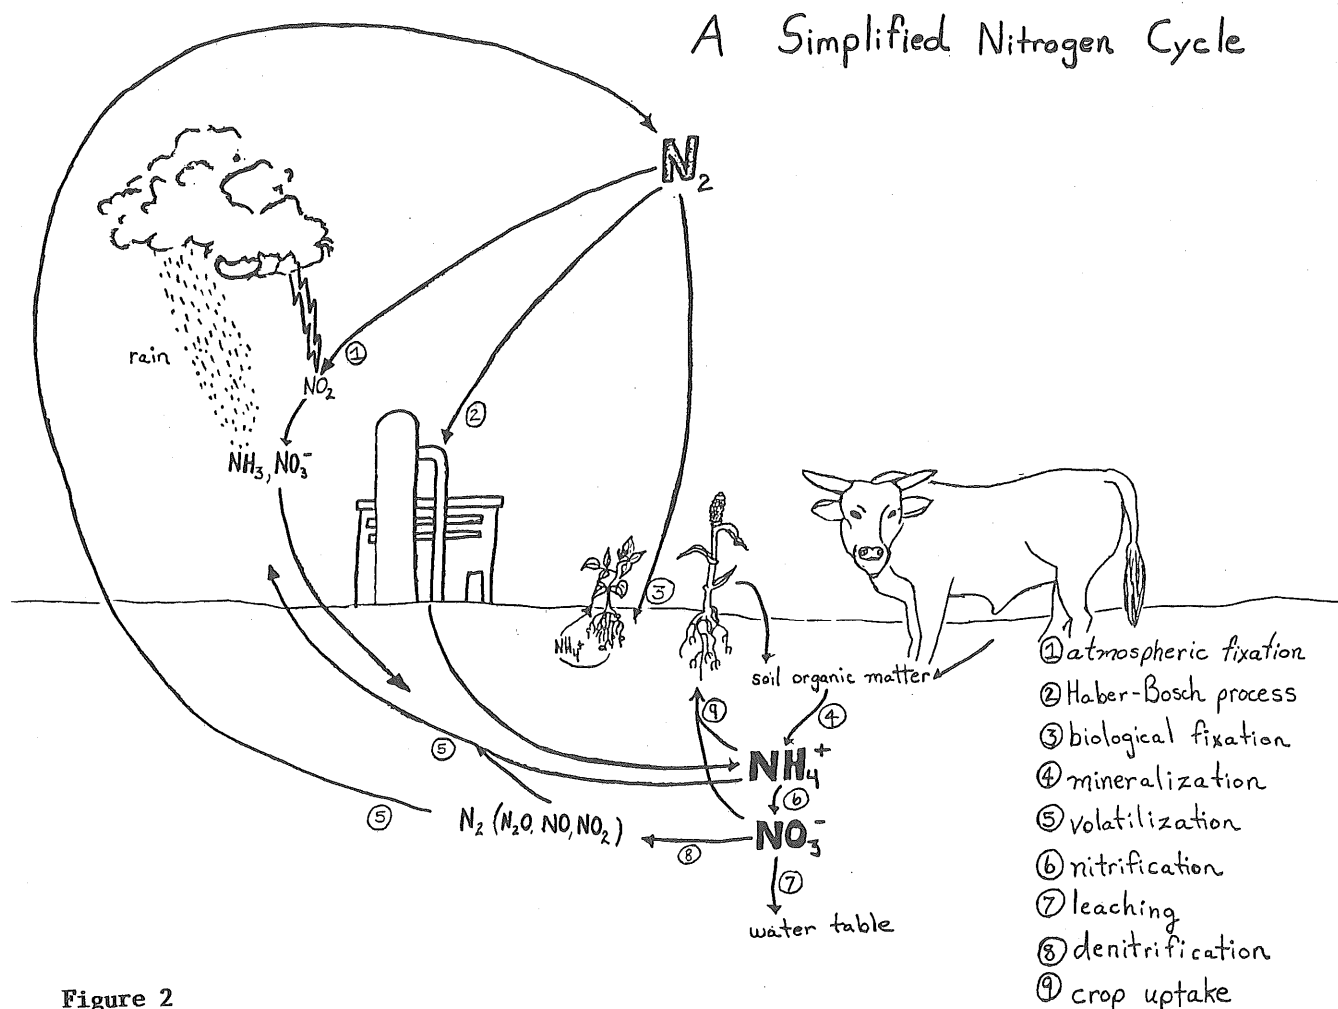 A Simplified Nitrogen Cycle
N₂
①
rain
NO₂
②
NH₃, NO₃⁻
③
NH₄⁺
soil organic matter
⑨
④
⑤
NH₄⁺
⑥
⑤
N₂ (N₂O, NO, NO₂)
NO₃⁻
⑧
⑦
water table
① atmospheric fixation
② Haber-Bosch process
③ biological fixation
④ mineralization
⑤ volatilization
⑥ nitrification
⑦ leaching
⑧ denitrification
⑨ crop uptake
Figure 2